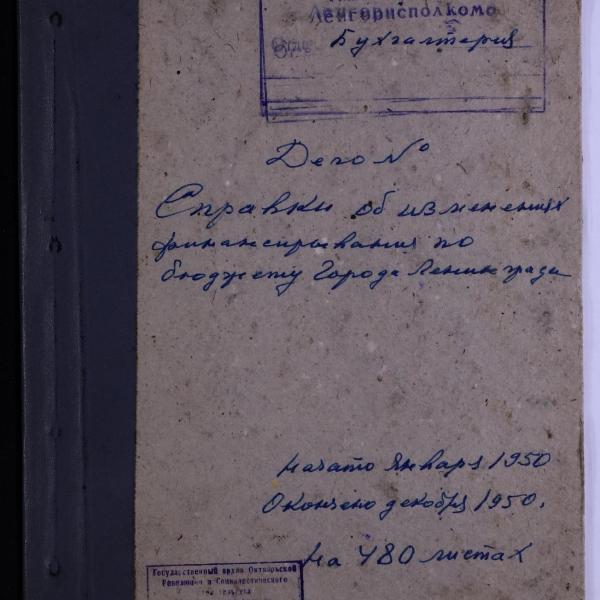 Ленгорисполкома
Отдел
Бухгалтерия
Дело №
Справки об изменениях
финансирования по
бюджету Города Ленинграда
Начато января 1950
Окончено декабря 1950.
На 480 листах
Государственный архив Октябрьской
Революции и Социалистического